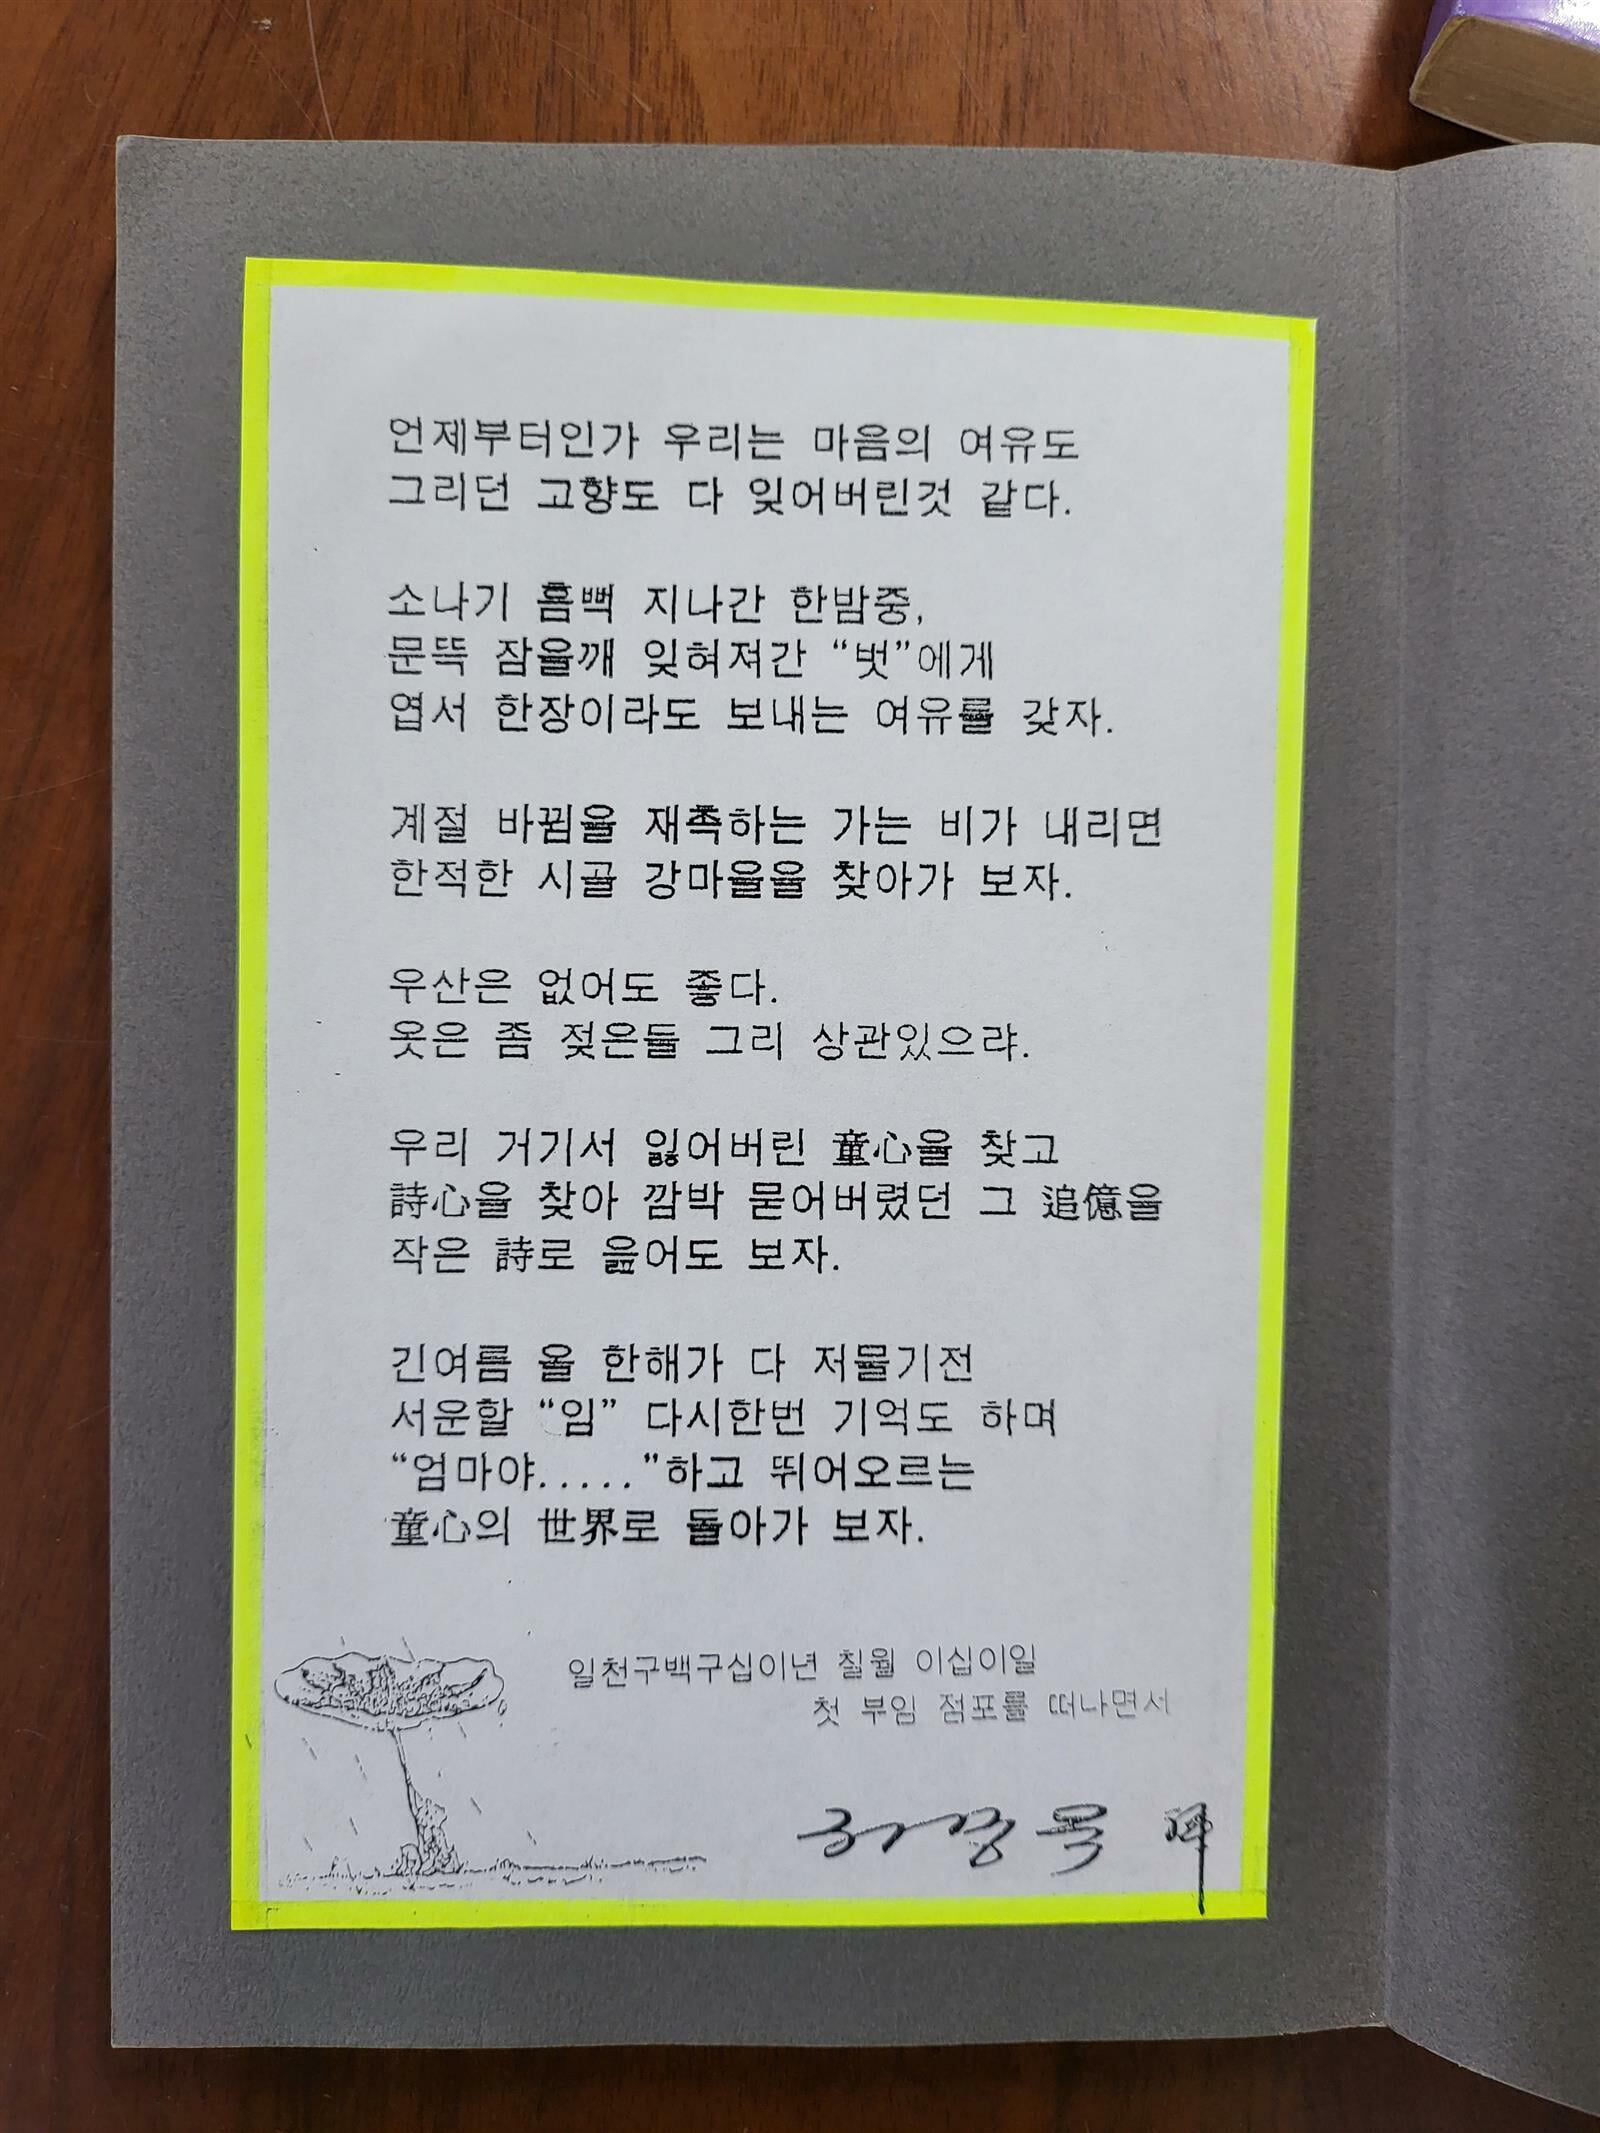 언제부터인가 우리는 마음의 여유도
그리던 고향도 다 잊어버린것 같다.
소나기 흠뻑 지나간 한밤중,
문뜩 잠을깨 잊혀져간 “벗”에게
엽서 한장이라도 보내는 여유를 갖자.
계절 바뀜을 재촉하는 가는 비가 내리면
한적한 시골 강마을을 찾아가 보자.
우산은 없어도 좋다.
옷은 좀 젖은들 그리 상관있으랴.
우리 거기서 잃어버린 童心을 찾고
詩心을 찾아 깜박 묻어버렸던 그 追億을
작은 詩로 읊어도 보자.
긴여름 올 한해가 다 저물기전
서운할 “임” 다시한번 기억도 하며
“엄마야.....”하고 뛰어오르는
童心의 世界로 돌아가 보자.
일천구백구십이년 칠월 이십이일
첫 부임 점포를 떠나면서